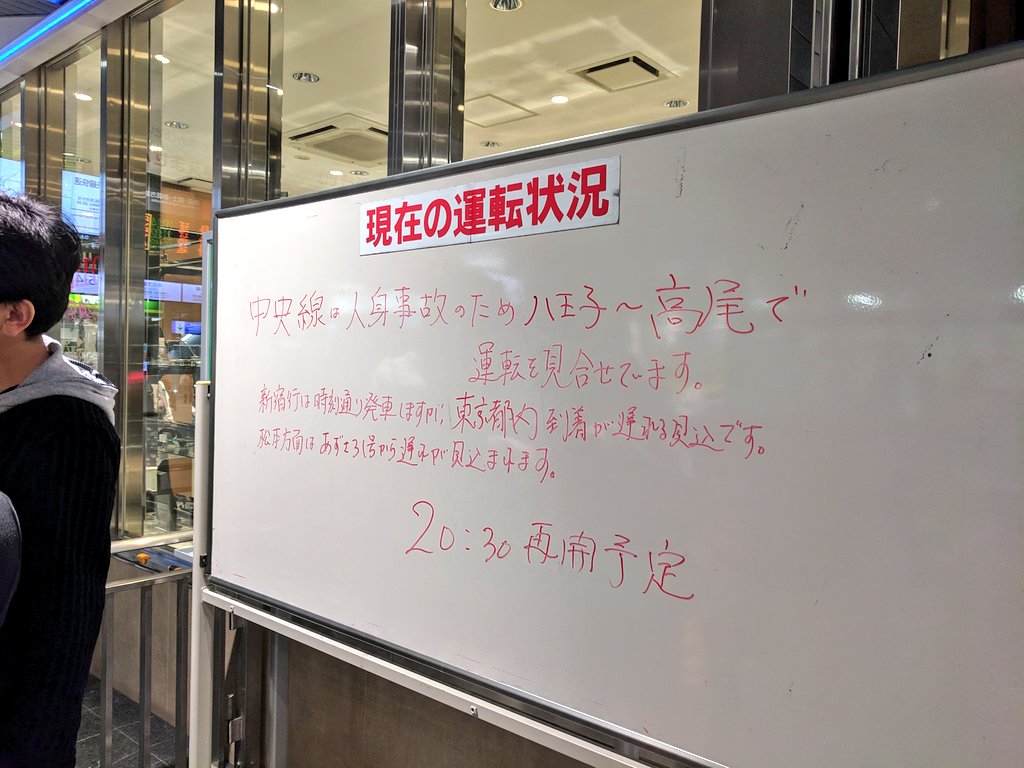 現在の運転状況
中央線は人身事故のため八王子～高尾で
運転を見合せています。
新宿行は時刻通り発車しますが、東京都内到着が遅れる見込です。
松本方面はあずさ3号から遅れが見込まれます。
20:30再開予定